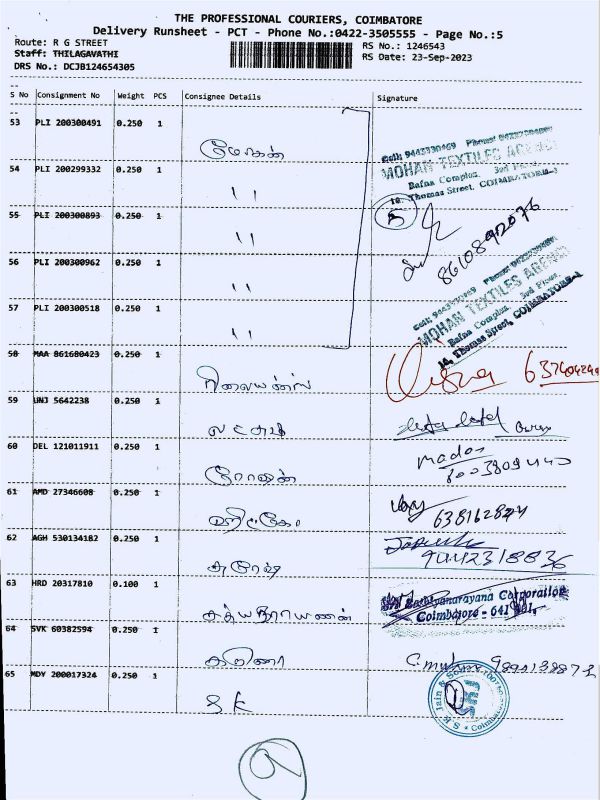 THE PROFESSIONAL COURIERS, COIMBATORE
Delivery Runsheet - PCT - Phone No.:0422-3505555 - Page No.:5
Route: R G STREET
RS No.: 1246543
Staff: THILAGAVATHI
RS Date: 23-Sep-2023
DRS No.: DCJB124654305
S No Consignment No Weight PCS Consignee Details Signature
53 PLI 200300491 0.250 1
மோகன்
MOHAN TEXTILES AGENCY
Bafna Complex, 3rd Floor,
Thomas Street, COIMBATORE-1
54 PLI 200299332 0.250 1
11
55 PLI 200300893 0.250 1
5
11
8610892076
56 PLI 200300962 0.250 1
11
MOHAN TEXTILES AGENCY
Bafna Complex, 3rd Floor,
14, Thomas Street, COIMBATORE-1
57 PLI 200300518 0.250 1
11
58 MAA 861680423 0.250 1
ரிலையன்ஸ்
59 UNJ 5642238 0.250 1
60 DEL 121011911 0.250 1
ரோஷன்
61 AMD 27346608 0.250 1
62 AGH 530134182 0.250 1
சுரேஷ்
9442318836
63 HRD 20317810 0.100 1
சத்யநாராயணன்
Sathyanarayana Corporation
Coimbatore - 641 001.
64 SVK 60382594 0.250 1
கரிணா
65 MDY 200017324 0.250 1
S K
9